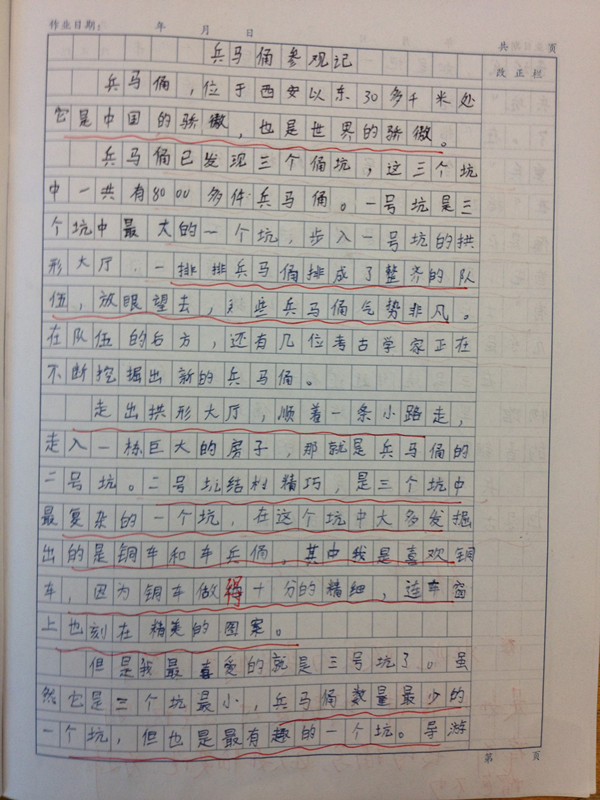 作业日期： 年 月 日
共 页
兵马俑参观记
改正栏
兵马俑，位于西安以东30多千米处
它是中国的骄傲，也是世界的骄傲。
兵马俑已发现三个俑坑，这三个坑
中一共有8000多件兵马俑。一号坑是三
个坑中最大的一个坑，步入一号坑的拱
形大厅，一排排兵马俑排成了整齐的队
伍，放眼望去，这些兵马俑气势非凡。
在队伍的右方，还有几位考古学家正在
不断挖掘出新的兵马俑。
走出拱形大厅，顺着一条小路走，
走入一栋巨大的房子，那就是兵马俑的
二号坑。二号坑结构精巧，是三个坑中
最复杂的一个坑，在这个坑中大多发掘
出的是铜车和车兵俑，其中我是喜欢铜
车，因为铜车做得十分的精细，连车窗
上也刻在精美的图案。
但是我最喜爱的就是三号坑了。虽
然它是三个坑最小，兵马俑数量最少的
一个坑，但也是最有趣的一个坑。导游
第 页